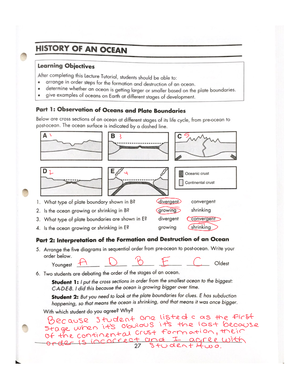 HISTORY OF AN OCEAN
Learning Objectives
After completing this Lecture Tutorial, students should be able to:
• arrange in order steps for the formation and destruction of an ocean.
• determine whether an ocean is getting larger or smaller based on the plate boundaries.
• give examples of oceans on Earth at different stages of development.
Part 1: Observation of Oceans and Plate Boundaries
Below are cross sections of an ocean at different stages of its life cycle, from pre-ocean to
post-ocean. The ocean surface is indicated by a dashed line.
A B C
Oceanic crust
Continental crust
D E
1. What type of plate boundary shown in B? divergent convergent
2. Is the ocean growing or shrinking in B? growing shrinking
3. What type of plate boundaries are shown in E? divergent convergent
4. Is the ocean growing or shrinking in E? growing shrinking
Part 2: Interpretation of the Formation and Destruction of an Ocean
5. Arrange the five diagrams in sequential order from pre-ocean to post-ocean. Write your
order below.
Youngest A D B E C Oldest
6. Two students are debating the order of the stages of an ocean.
Student 1: I put the cross sections in order from the smallest ocean to the biggest:
CADEB. I did this because the ocean is growing bigger over time.
Student 2: But you need to look at the plate boundaries for clues. E has subduction
happening, so that means the ocean is shrinking, and that means it was once bigger.
With which student do you agree? Why?
Because Student one listed C as the first
stage when it's obvious it's the last because
of the continental crust formation, their
order is incorrect and I agree with
27 Student two.